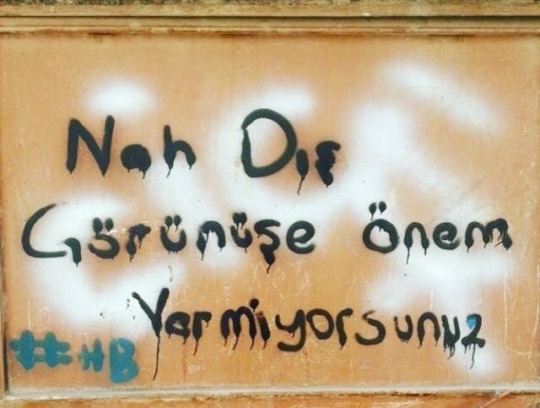 Nah Dış
Görünüşe Önem
Vermiyorsunuz
#HB